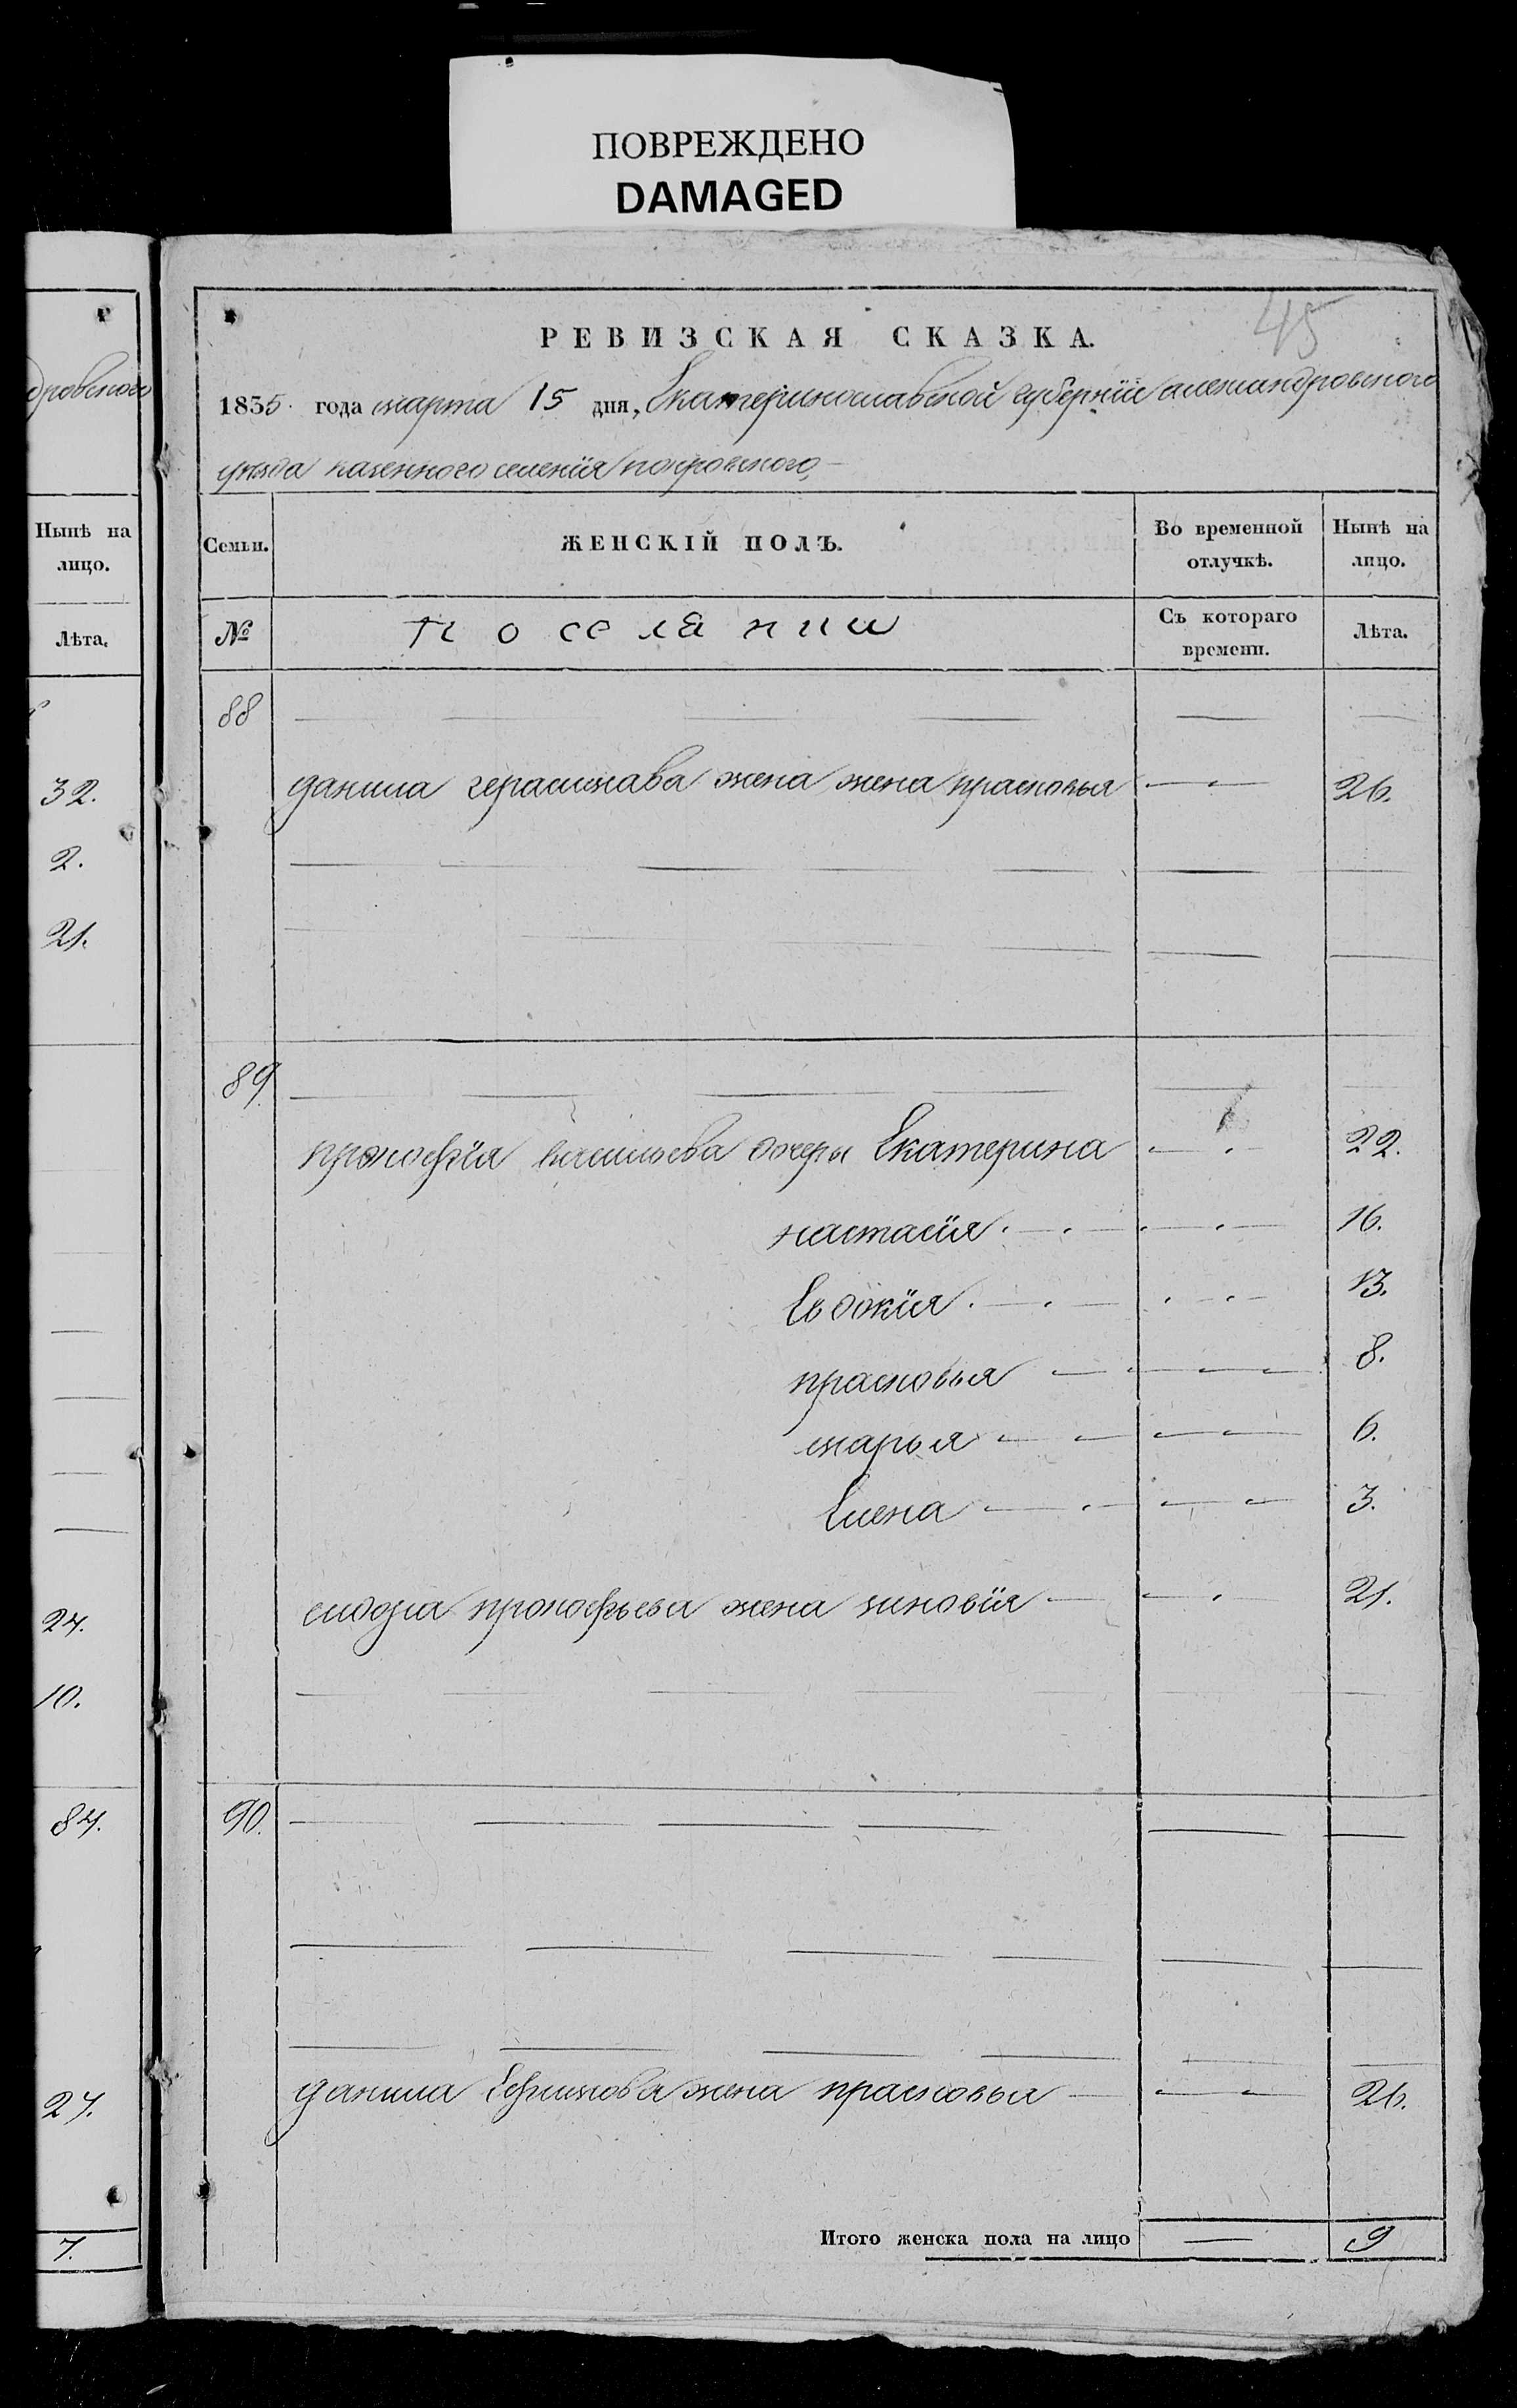 ПОВРЕЖДЕНО
DAMAGED
45
РЕВИЗСКАЯ СКАЗКА.
1835. года марта 15 дня, Екатеринославской губернiи александровского
уезда казенного селенiя покровского,
дровского
Семьи.
ЖЕНСКІЙ ПОЛЪ.
Во временной отлучкѣ.
Нынѣ на лицо.
Нынѣ на лицо.
№
поселянии
Съ котораго времени.
Лѣта.
Лѣта.
88
данила герасимава жена жена прасковья 26.
32.
2.
21.
89
прокофiя васильева дочеры Екатерина 22.
настасiя 16.
Евдокiя 13.
прасковья 8.
марья 6.
Елена 3.
сидора прокофьева жена зиновiя 21.
24.
10.
90.
84.
данила Ефимова жена прасковья 26.
27.
Итого женска пола на лицо — 9
7.